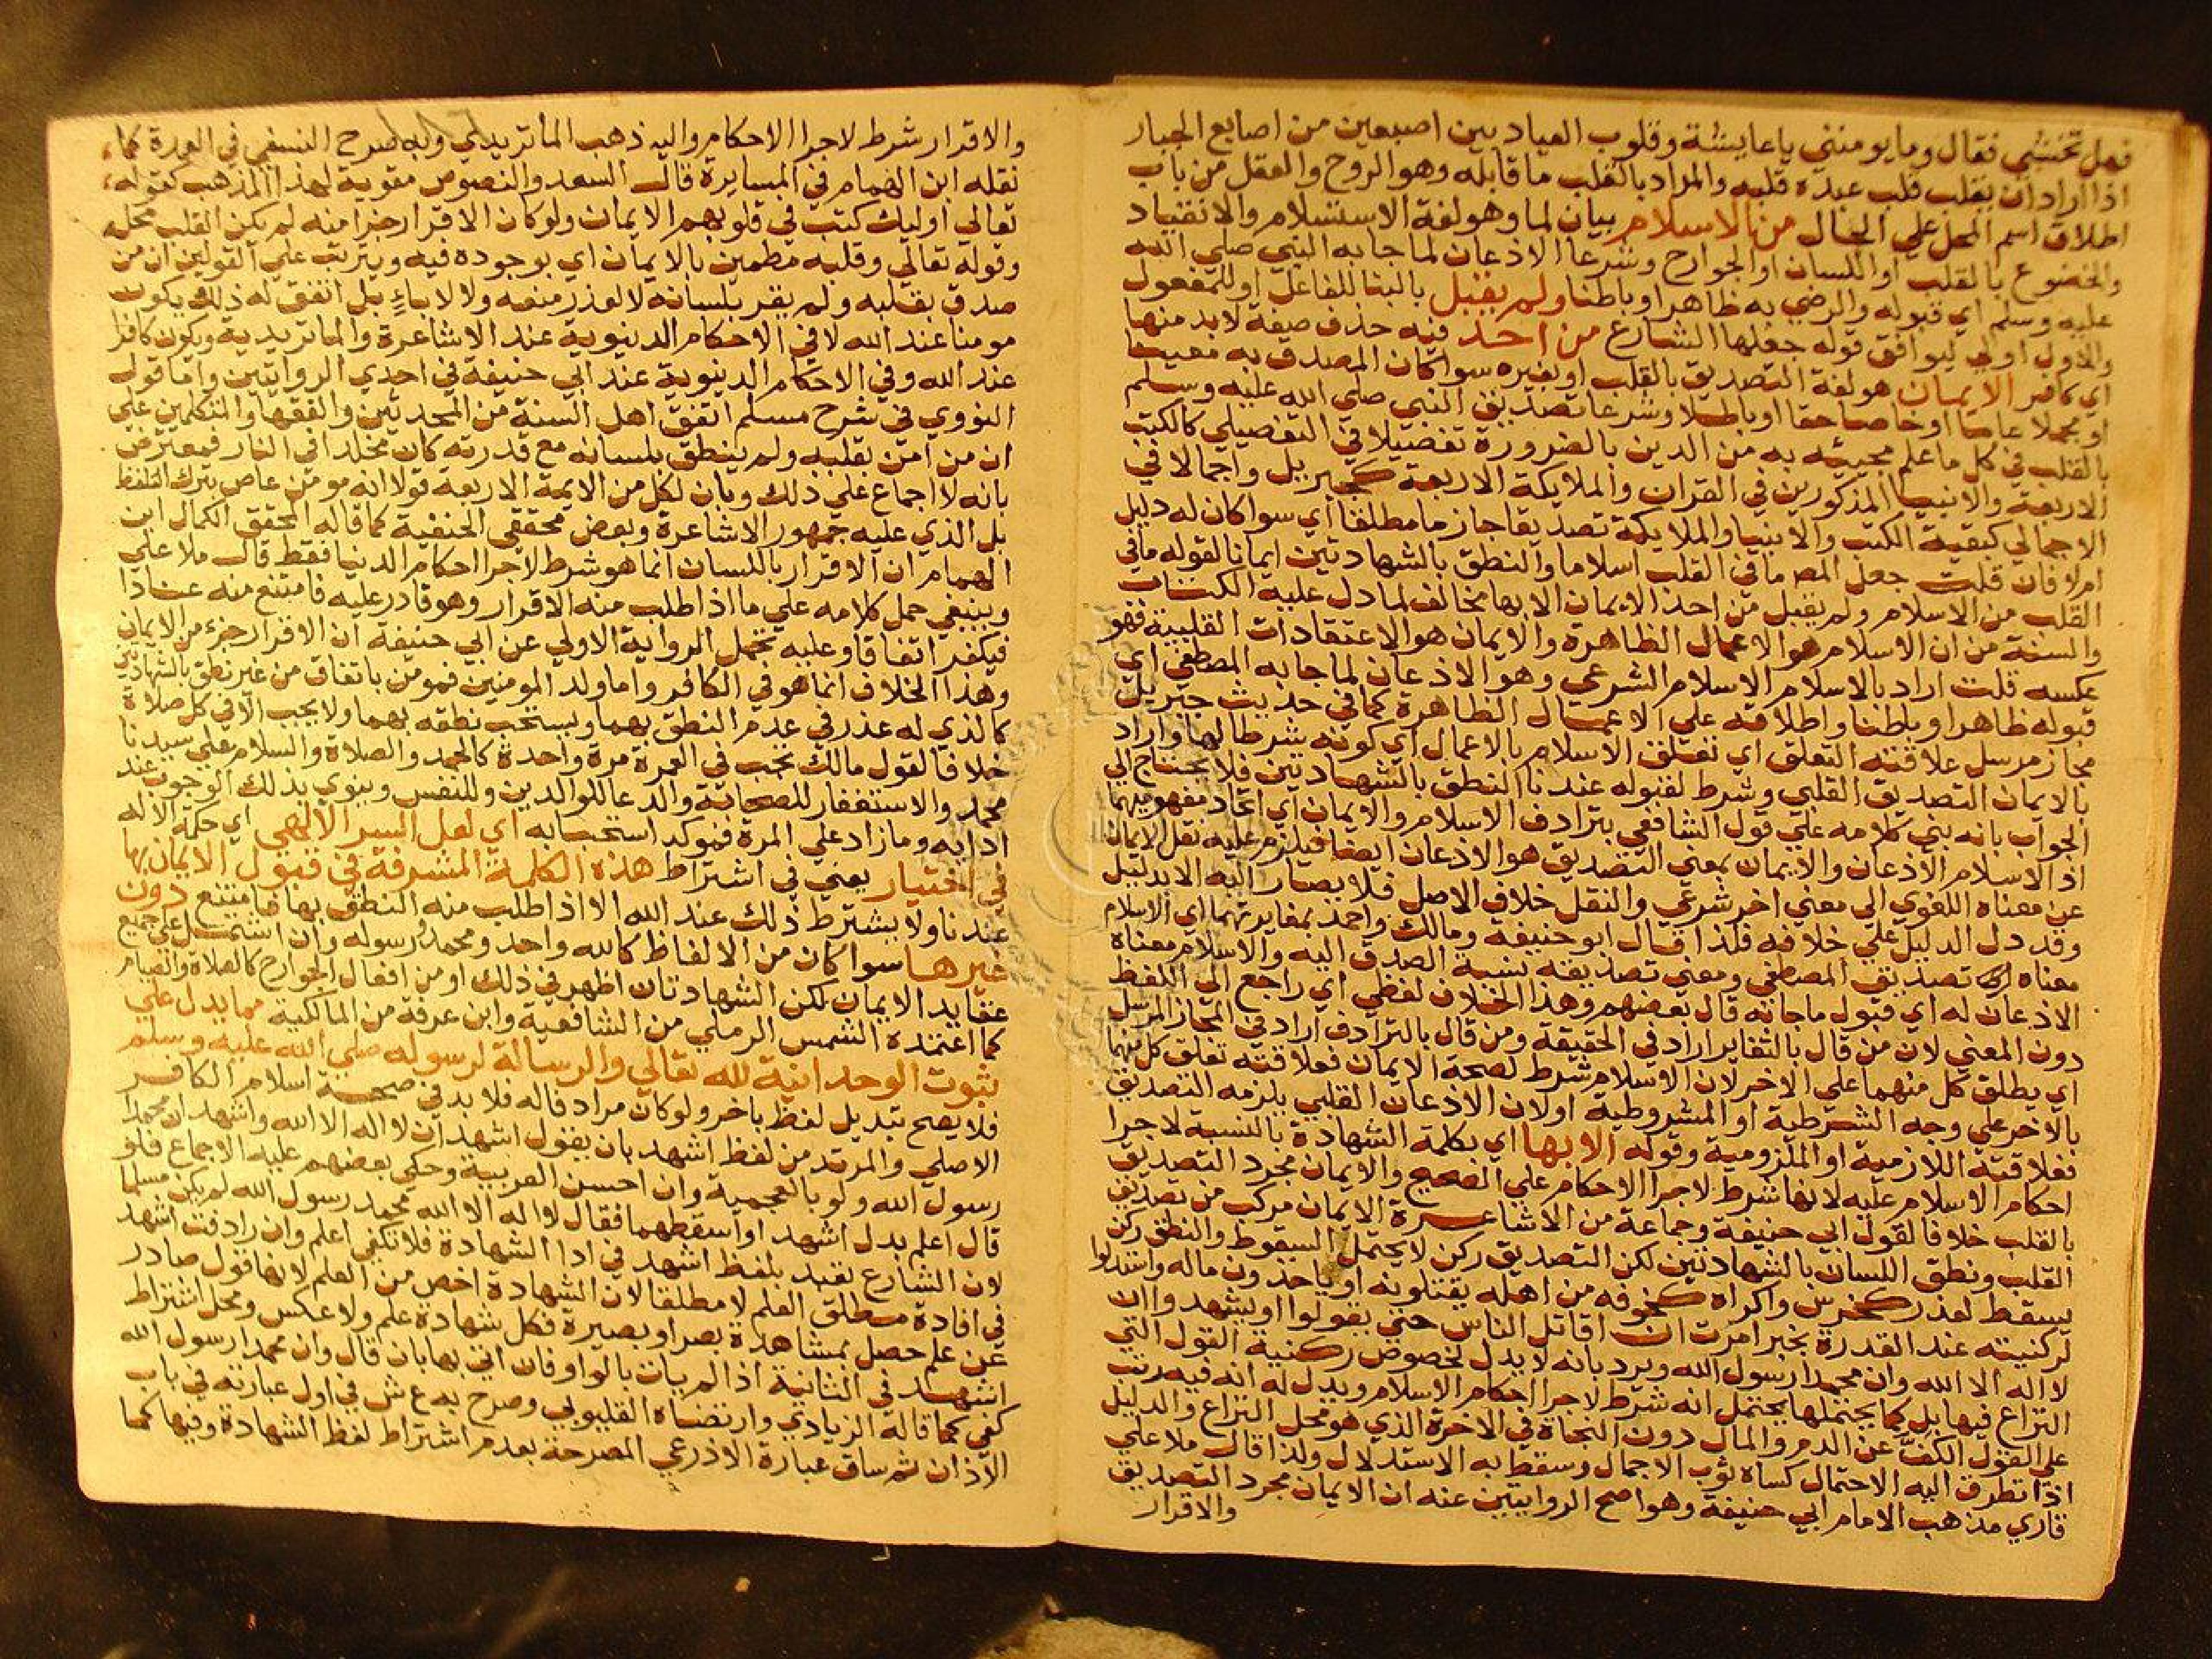 فهل تخشى فقال وما يومنني ياعايشة وقلوب العباد بين اصبعين من اصابع الجبار
اذا اراد ان يقلب قلب عبده قلبه والمراد بالقلب ما قابله وهو الروح والعقل من باب
اطلاق اسم المحل علي الحال من الاسلام بيان لما وهو لغة الاستسلام والانقياد
والخضوع بالقلب او اللسان او الجوارح وشرعا الاذعان لما جا به النبي صلي الله
عليه وسلم اي قبوله والرضي به ظاهرا وباطنا ولم يقبل بالبنا للفاعل او للمفعول
والاول اولي ليوافق قوله جعلها الشارع من احد فيه حذف صفة لابد منها
اي كافر الايمان هو لغة التصديق بالقلب او بغيره سوا كان المصدق به معينا
او مجملا عاما او خاصا حقا او باطلا وشرعا تصديق النبي صلي الله عليه وسلم
بالقلب في كل ما علم مجيئه به من الدين بالضرورة تفصيلا في التفصيلي كالكتب
الاربعة والانبيا المذكورين في القران والملايكة الاربعة كجبريل واجمالا في
الاجمالي كبقية الكتب والانبيا والملايكة تصديقا جازما مطلقا اي سوا كان له دليل
ام لا فان قلت جعل المص ما في القلب اسلاما والنطق بالشهادتين ايمانا لقوله ما في
القلب من الاسلام ولم يقبل من احد الايمان الا بها مخالف لما دل عليه الكتاب
والسنة من ان الاسلام هو الاعمال الظاهرة والايمان هو الاعتقادات القلبية فهو
عكسه قلت اراد بالاسلام الاسلام الشرعي وهو الاذعان لما جا به المصطفي اي
قبوله ظاهرا وباطنا واطلاقه علي الاعمال الظاهرة كما في حديث جبريل
مجاز مرسل علاقته التعلق اي تعلق الاسلام بالاعمال اي كونه شرطا لها واراد
بالايمان التصديق القلبي وشرط لقبوله عندنا النطق بالشهادتين فلا يحتاج الي
الجواب بانه بني كلامه علي قول الشافعي بترادف الاسلام والايمان اي اتحاد مفهوميهما
اذ الاسلام الاذعان والايمان بمعني التصديق هو الاذعان ايضا فيلزم عليه نقل الايمان
عن معناه اللغوي الي معني اخر شرعي والنقل خلاف الاصل فلا يصار اليه الا بدليل
وقد دل الدليل علي خلافه فلذا قال ابو حنيفة ومالك واحمد بمغايرتهما اي الاسلام
معناه تصديق المصطفي ومعني تصديقه نسبة الصدق اليه والاسلام معناه
الاذعان له اي قبول ما جا به قال بعضهم وهذا الخلاف لفظي اي راجع الي اللفظ
دون المعني لان من قال بالتغاير اراد في الحقيقة ومن قال بالترادف اراد في المجاز المرسل
اي يطلق كل منهما علي الاخر لان الاسلام شرط لصحة الايمان فعلاقته تعلق كل منهما
بالاخر علي وجه الشرطية او المشروطية او لان الاذعان القلبي يلزمه التصديق
فعلاقته اللازمية او الملزومية وقوله الا بها اي بكلمة الشهادة بالنسبة لاجرا
احكام الاسلام عليه لانها شرط لاجرا الاحكام علي الصحيح والايمان مجرد التصديق
بالقلب خلافا لقول ابي حنيفة وجماعة من الاشاعرة الايمان مركب من تصديق
القلب ونطق اللسان بالشهادتين لكن التصديق ركن لا يحتمل السقوط والنطق ركن
يسقط لعذر كخرس واكراه كخوفه من اهله يقتلونه او ياخذون ماله واستدلوا
لركنيته عند القدرة بخبر امرت ان اقاتل الناس حتي يقولوا او يشهدوا ان
لا اله الا الله وان محمدا رسول الله ويرد بانه لا يدل لخصوص ركنية القول التي
النزاع فيها بل كما يحتملها يحتمل انه شرط لاجرا احكام الاسلام ويدل له انه فيه رتب
علي القول الكف عن الدم والمال دون النجاة في الاخرة الذي هو محل النزاع والدليل
اذا تطرق اليه الاحتمال كساه ثوب الاجمال وسقط به الاستدلال ولذا قال ملا علي
قاري مذهب الامام ابي حنيفة وهو اصح الروايتين عنه ان الايمان مجرد التصديق
والاقرار
والاقرار شرط لاجرا الاحكام واليه ذهب الماتريدي وبه صرح النسفي في العمدة كما
نقله ابن الهمام في المسايرة قال السعد والنصوص مقوية لهذا المذهب كقوله
تعالي اوليك كتب في قلوبهم الايمان ولو كان الاقرار جزا منه لم يكن القلب محله
وقوله تعالي وقلبه مطمين بالايمان اي بوجوده فيه ويترتب علي القولين ان من
صدق بقلبه ولم يقر بلسانه لا لعذر منعه ولا لاباء بل اتفق له ذلك يكون
مومنا عند الله لا في الاحكام الدنيوية عند الاشاعرة والماتريدية ويكون كافرا
عند الله وفي الاحكام الدينوية عند ابي حنيفة في احدي الروايتين واما قول
النووي في شرح مسلم اتفق اهل السنة من المحدثين والفقها والمتكلمين علي
ان من امن بقلبه ولم ينطق بلسانه مع قدرته كان مخلدا في النار فمعترض
بانه لا اجماع علي ذلك وبان لكل من الايمة الاربعة قولا انه مومن عاص بترك التلفظ
بل الذي عليه جمهور الاشاعرة وبعض محققي الحنفية كما قاله المحقق الكمال ابن
الهمام ان الاقرار باللسان انما هو شرط لاجرا احكام الدنيا فقط قال ملا علي
وينبغي حمل كلامه علي ما اذا طلب منه الاقرار وهو قادر عليه فامتنع منه عنادا
فيكفر اتفاقا وعليه تحمل الرواية الاولي عن ابي حنيفة ان الاقرار جزء من الايمان
وهذا الخلاف انما هو في الكافر واما ولد المومنين فمومن باتفاق من غير نطق بالشهادتين
كالذي له عذر في عدم النطق بهما ويستحب نطقه بهما ولا يجب الا في كل صلاة
خلافا لقول مالك تجب في العمرة مرة واحدة كالحمد والصلاة والسلام علي سيدنا
محمد والاستغفار للصحابة والدعا للوالدين وللنفس وينوي بذلك الوجوب عند
ادايه وما زاد علي المرة فموكد استحبابه اي لعل السر الالهي اي حكمة الاله
في اختيار يعني في اشتراط هذه الكلمة المشرفة في قبول الايمان بها
عندنا ولا يشترط ذلك عند الله الا اذا طلب منه النطق بها فامتنع دون
غيرها سوا كان من الالفاظ كالله واحد ومحمد رسوله وان اشتمل علي جميع
عقايد الايمان لكن الشهادتان اظهر في ذلك او من افعال الجوارح كالصلاة والصيام
كما اعتمده الشمس الرملي من الشافعية وابن عرفة من المالكية مما يدل علي
ثبوت الوحدانية لله تعالي والرسالة لرسوله صلي الله عليه وسلم
فلا يصح تبديل لفظ باخر ولو كان مرادفا له فلا بد في صحة اسلام الكافر
الاصلي والمرتد من لفظ اشهد بان يقول اشهد ان لا اله الا الله واشهد ان محمدا
رسول الله ولو بالعجمية وان احسن العربية وحكي بعضهم عليه الاجماع فلو
قال اعلم بدل اشهد او اسقطهما فقال لا اله الا الله محمد رسول الله لم يكن مسلما
لان الشارع تعبد بلفظ اشهد في ادا الشهادة فلا تكفي اعلم وان رادفت اشهد
في افادة مطلق العلم لا مطلقا لان الشهادة اخص من العلم لانها قول صادر
عن علم حصل بمشاهدة بصر او بصيرة فكل شهادة علم ولا عكس ومحل اشتراط
اشهد في الثانية اذا لم يات بالواو فان اتي بها بان قال وان محمدا رسول الله
كفي كما قاله الزيادي وارتضاه القليوبي وصرح به ع ش في اول عبارته في باب
الاذان ثم ساق عبارة الاذرعي المصرحة بعدم اشتراط لفظ الشهادة وفيها كما